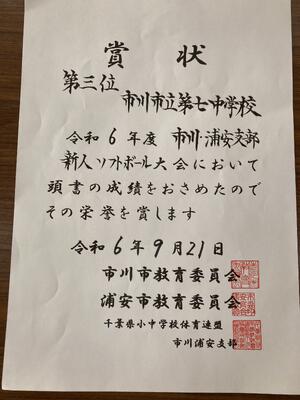 賞状
第三位
市川市立第七中学校
令和6年度 市川・浦安支部
新人ソフトボール大会において
頭書の成績をおさめたので
その栄誉を賞します
令和6年9月21日
市川市教育委員会
浦安市教育委員会
千葉県小中学校体育連盟
市川浦安支部